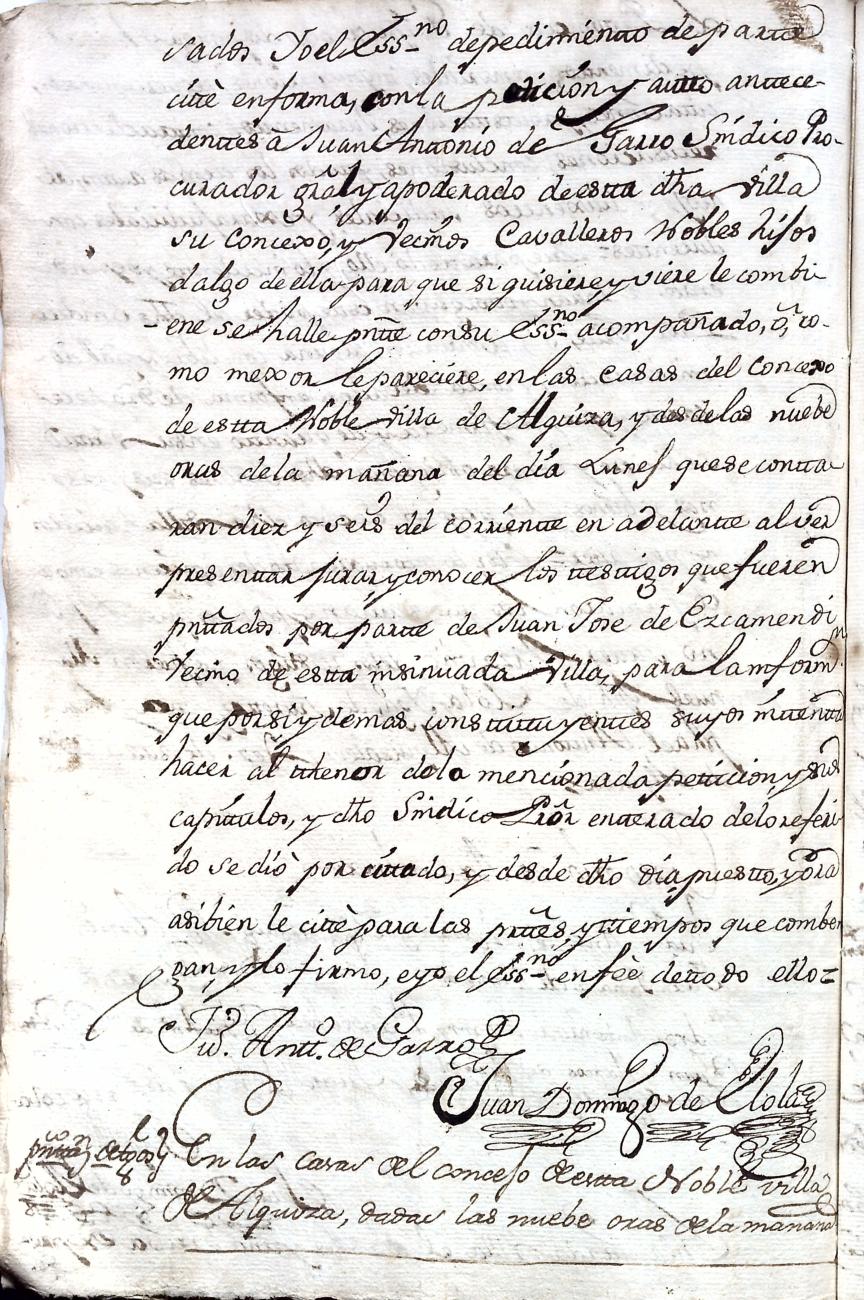 sados Yo el Essno de pedimientto de partte
citte en forma, con la petición y autto anttece-
denttes â Juan Anttonio de Garro Sindico Pro-
curador gral y apoderado de estta dha villa
su Concexo, y Vecinos Cavalleros Nobles hijos
dalgo de ella para que si quisiere, y viere le combi-
ene se halle pntte con su Essno acompañado, ô, co-
mo mexor le pareciere, en las casas del Concexo
de estta Noble villa de Alquiza, y desde las nuebe
oras de la mañana del día Lunes que se contta-
ran diez y seis del corrientte en adelantte al ver
presenttar jurar, y conocer los ttesttigos que fueren
pnttados por partte de Juan Jose de Ezcamendi
Vecino de estta insinuada Villa, para la inform.n
que por si y demas consttittuyenttes suyos inttentta
hacer al tthenor de la mencionada petticion, y sus
capittulos, y dho Sindico Pror entterado de lo referi-
do se diò por cittado, y desde dho día puestto, y ora
asibien le citte para las prttes, y ttiempos que comben
gan, y lo firmo, e yo el Essno en feè de ttodo ello =
Jun. Antto. de Garro
Juan Domingo de Elola
En las casas del concejo de estta Noble villa
de Alquiza, dadas las nuebe oras de la mañana